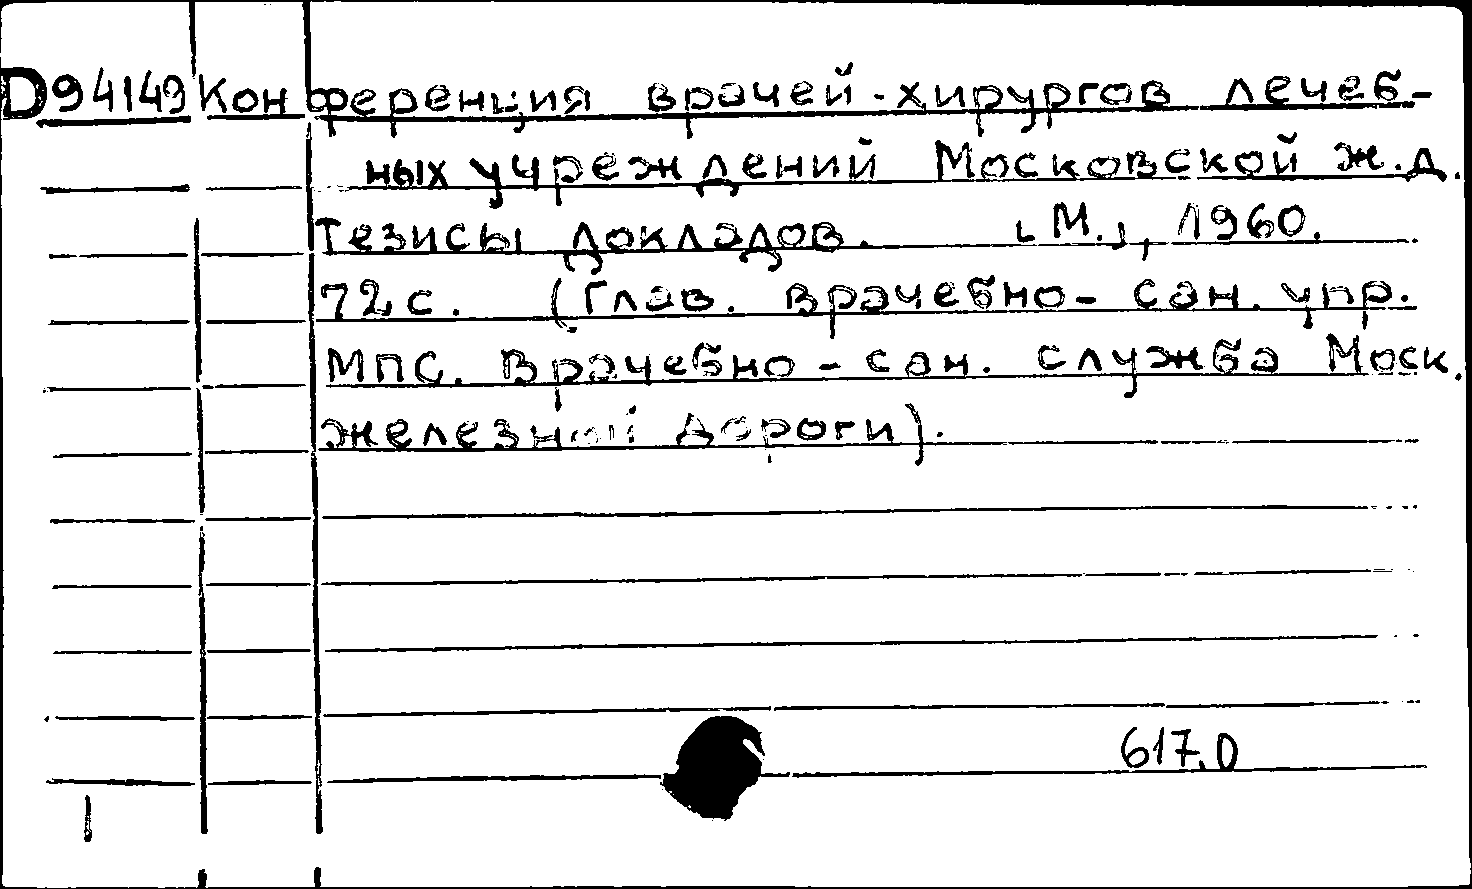 D94149 Конференция врачей-хирургов лечеб-
ных учреждений Московской ж.д.
Тезисы докладов. [М.], 1960.
72 с. (Глав. врачебно-сан. упр.
МПС. Врачебно-сан. служба Моск.
железной дороги).
617.0
1